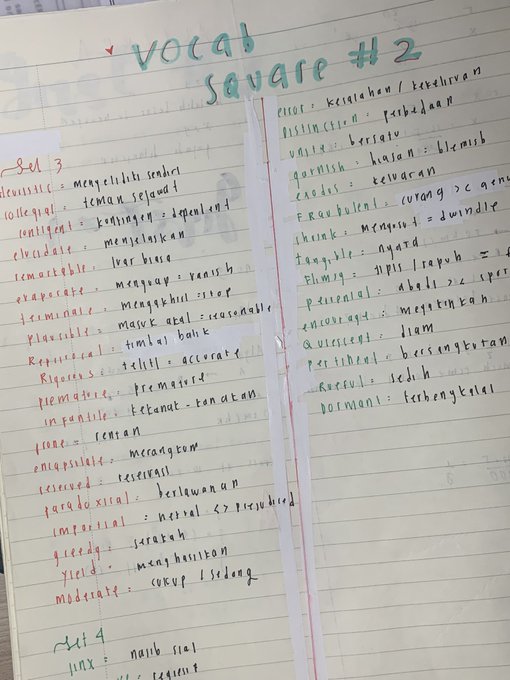 VOCAB
SQUARE #2
Set 3
heuristic = menyelidiki sendiri
collegial = teman sejawat
contigent = kontingen = dependent
elucidate = menjelaskan
remarkable = luar biasa
evaporate = menguap = vanish
terminate = mengakhiri = stop
plausible = masuk akal = reasonable
Reciprocal = timbal balik
Rigorous = teliti = accurate
premature = premature
infantile = kekanak-kanakan
prone = rentan
encapsulate = merangkum
reserved = reservasi
paradoxical = berlawanan
impartial = netral <> prejudiced
greedy = serakah
yield = menghasilkan
moderate = cukup / sedang
Set 4
jinx = nasib sial
= regresit
error = kesalahan / kekeliruan
Distinction = perbedaan
unite = bersatu
garnish = hiasan = blemish
exodus = keluaran
FRaudulent = curang >< genu
shrink = mengusut = dwindle
tangible = nyata
Flimsy = tipis / rapuh = f
perennial = abadi >< spor
encourage = meyakinkan
Quiescent = diam
pertinent = bersangkutan
Rueful = sedih
Dormant = terbengkalai